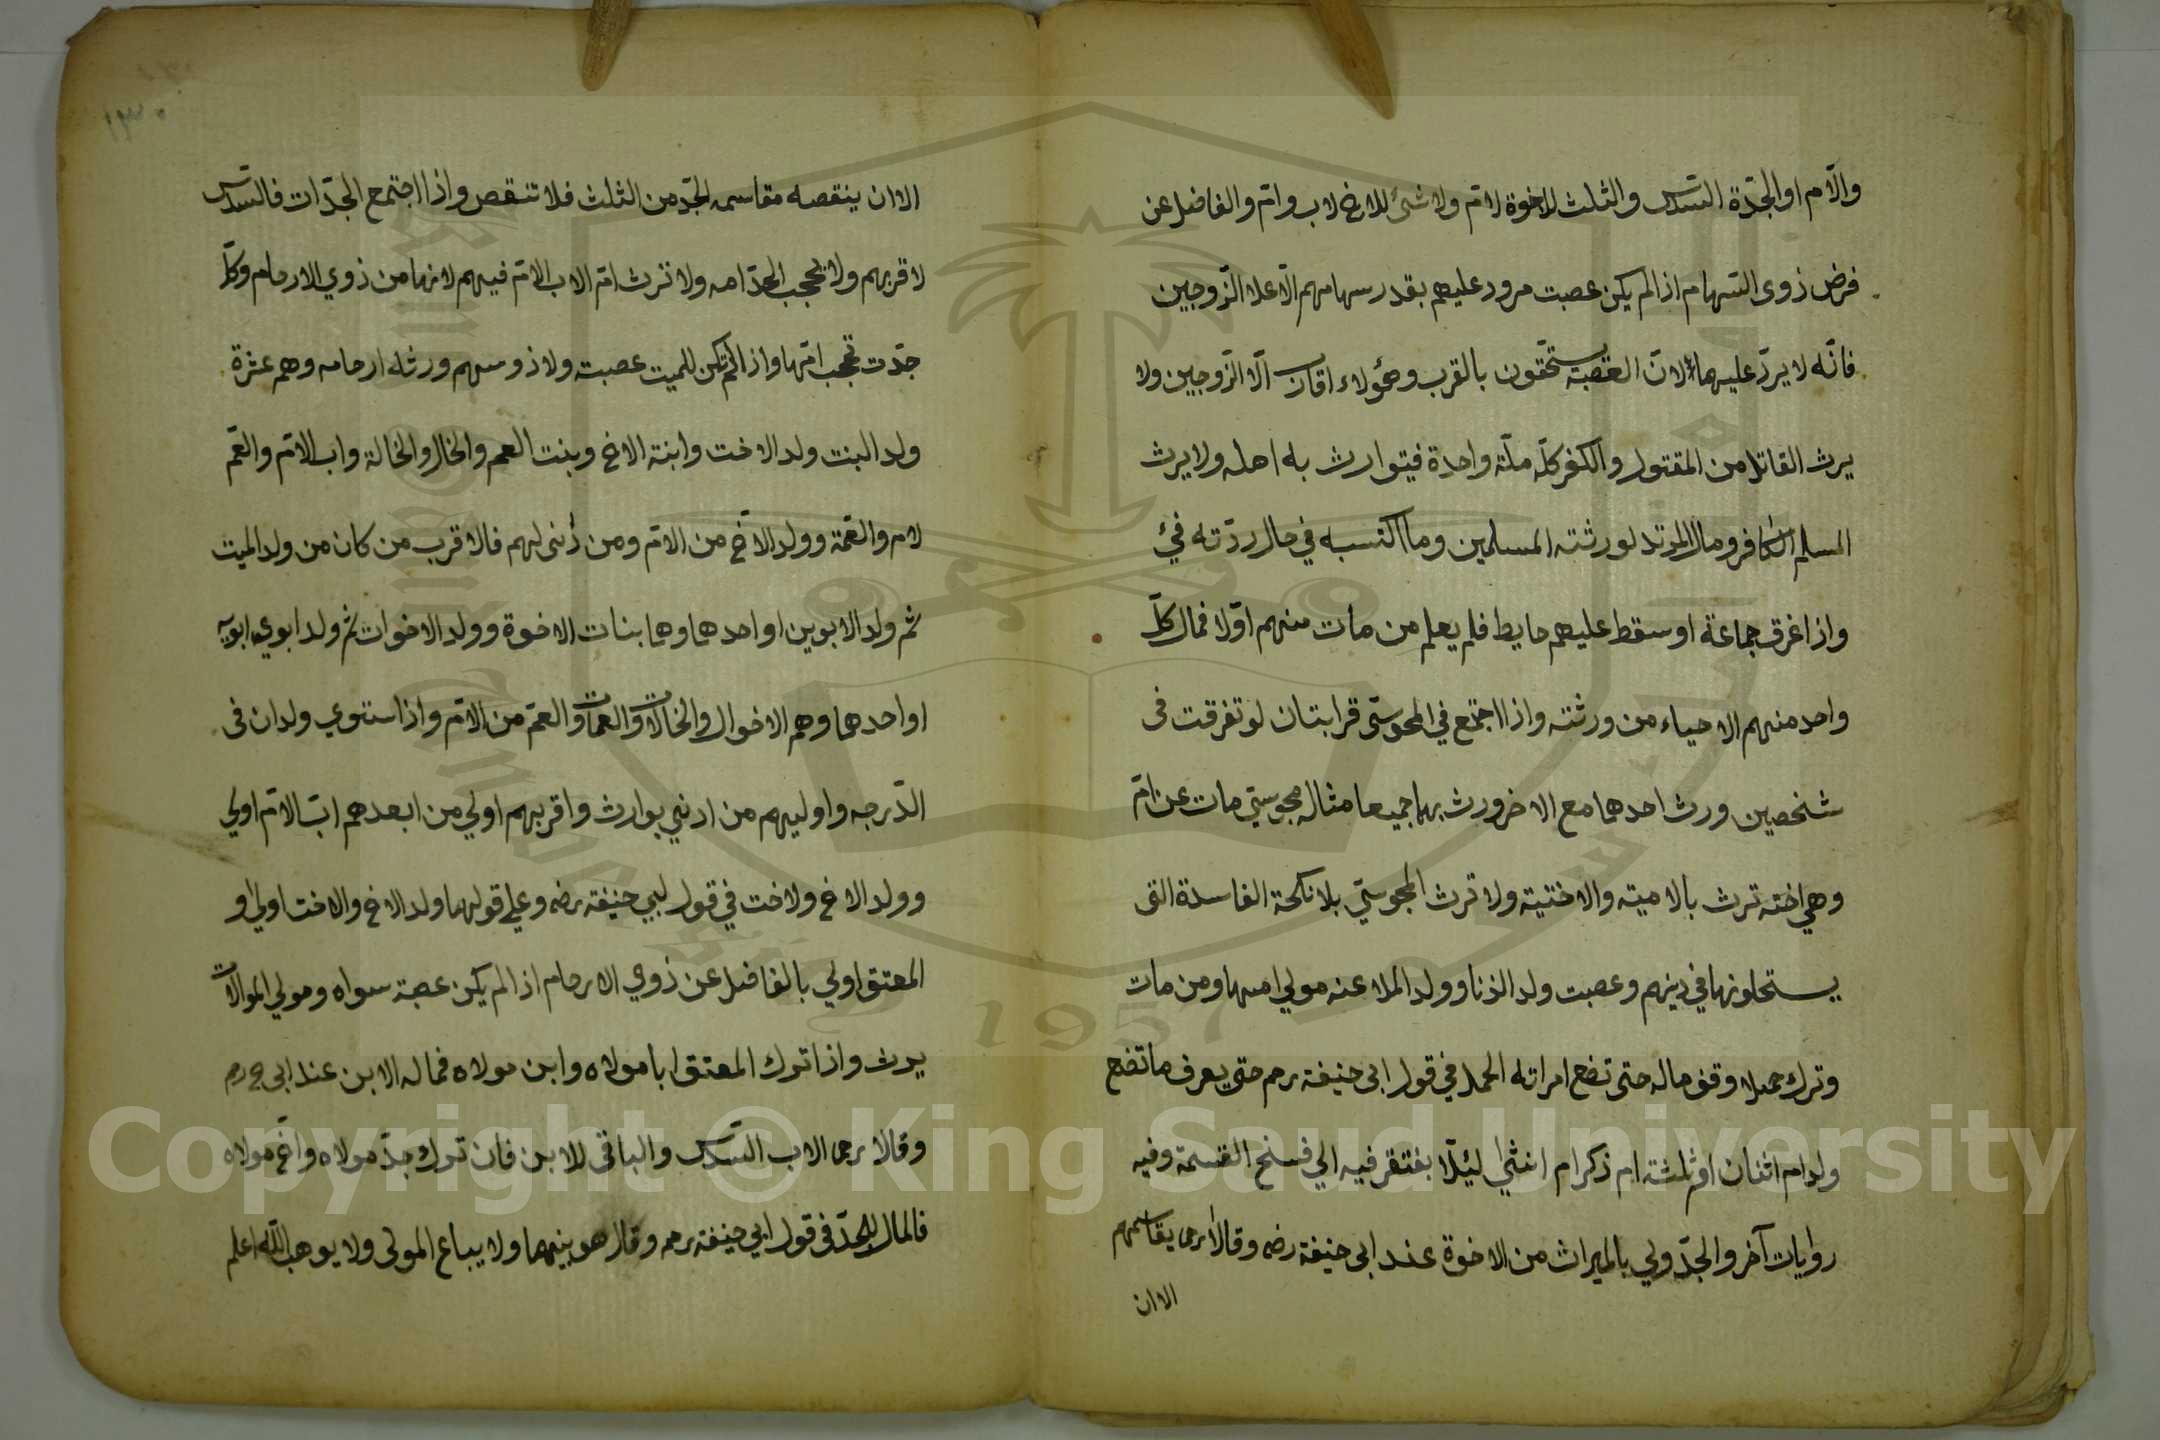 والام او الجدة السدس والثلث للاخوة لام ولا شئ للاخ لاب وام والفاضل عن
فرض ذوى السهام اذا لم يكن عصبت مردود عليهم بقدر سهامهم الا علا الزوجين
فانه لا يرد عليهما لان العصبة يستحقون بالقرب وهؤلاء اقارب الا الزوجين ولا
يرث القاتل من المقتول والكفر كله ملة واحدة فيتوارث به اهله ولا يرث
المسلم الكافر ومال المرتد لورثته المسلمين وما اكتسبه في حال ردته فئ
واذا غرق جماعة او سقط عليهم حايط فلم يعلم من مات منهم اولا فمال كل
واحد منهم الاحياء من ورثته واذا اجتمع في المجوسى قرابتان لو تفرقت فى
شخصين ورث احدهما مع الاخر ورث بهما جميعا مثاله مجوسي مات عن ام
وهي اخته ترث بالاميته والاختيه ولا ترث المجوسي بلا نكحة الفاسدة التى
يستحلونها في دينهم وعصبت ولد الزنا وولد الملاعنه مولي امهما ومن مات
وترك حملا وقف ماله حتى تضع امراته الحمل في قول ابى حنيفة رحم حتى يعرف ما تضع
ولد ام اثنان او ثلثة ام ذكر ام انثي ليلا يفتقر فيه الي فسخ القسمة وفيه
روايات آخر والجد ولي بالميراث من الاخوة عند ابى حنيفة رضه وقالا رحم يقاسمهم
الا ان
الا ان ينقصه مقاسمه الجد من الثلث فلا تنقص واذا اجتمع الجدات فالسدس
لاقربهم ولا يحجب الجد امه ولا ترث ام الاب الام فيهم لانها من ذوي الارحام وكل
جدت تحجب امها واذا لم تكن للميت عصبته ولا ذو سهم ورثه ارحامه وهم عثرة
ولد البنت ولد الاخت وابنة الاخ وبنت العم والخال والخالة واب الام والعم
لام والعمة وولد الاخ من الام ومن ادنى لهم فالاقرب من كان من ولد الميت
ثم ولد الابوين او احدهما وهما بنات الاخوة وولد الاخوات ثم ولد ابوي ابويه
او احدهما وهم الاخوال والخالات والعمات والعم من الام واذا ستوي ولدان فى
الدرجه واوليهم من ادني بوارث واقربهم اولي من ابعدهم اب الام اولي
وولد الاخ ولاخت في قول ابي حنيفة رضه وعلي قولهما ولد الاخ والاخت اولي و
المعتق اولي بالفاضل عن ذوي الارحام اذا لم يكن عصبة سواه ومولي الموالات
يرث واذا ترك المعتق ابا مولاه وابن مولاه فماله الابن عند ابى ح رحم
وقالا رحم الاب السدس والباقى للابن فان ترك جد مولاه واخ مولاه
فالمال للجد فى قول ابي حنيفة رحمه وقال هو بينهما ولا يباع المولى ولا يوهب الله اعلم